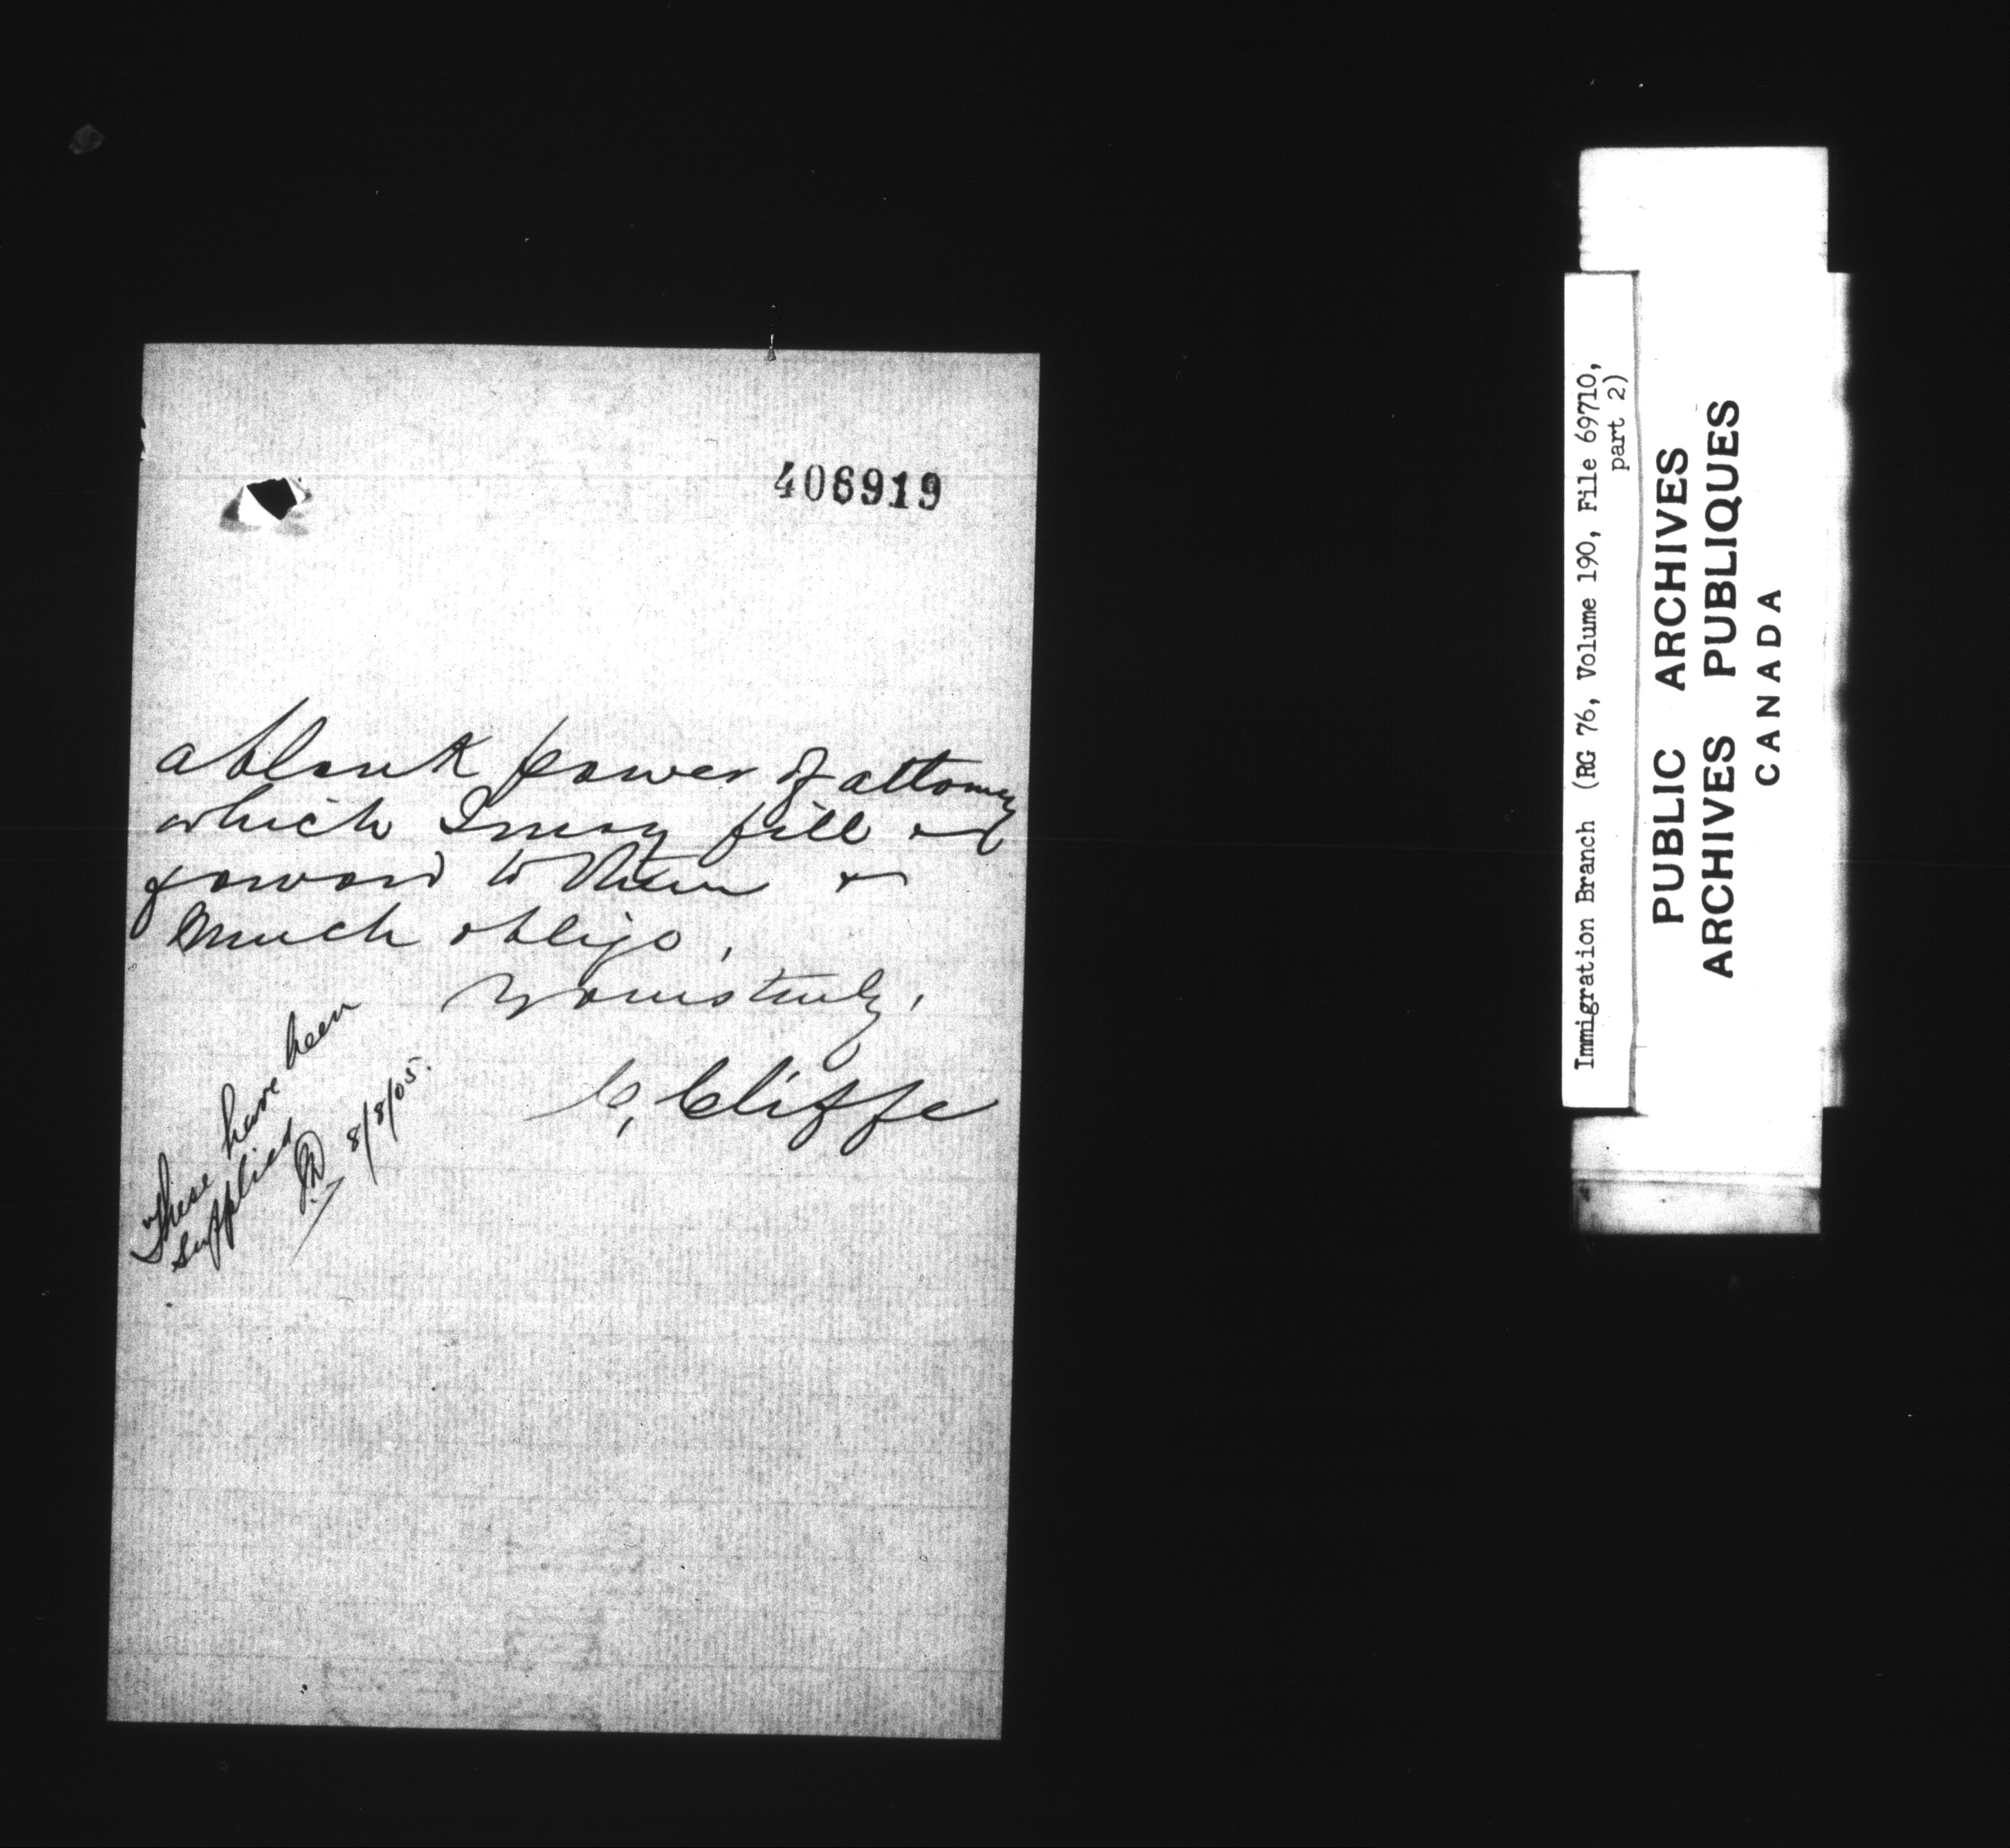 406919
a blank power of attorney
which I may fill and
forward to them &
much oblige,
Yours truly,
C. Cliffe
These have been
supplied
8/8/05.
Immigration Branch (RG 76, Volume 190, File 69710,
part 2)
PUBLIC ARCHIVES
ARCHIVES PUBLIQUES
CANADA